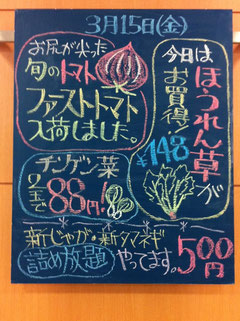 3月15日(金)
お尻が尖った
旬のトマト
ファーストトマト
入荷しました。
今日は
ほうれん草が
お買得!
¥148
チンゲン菜
2玉で
88円!
新じゃが・新タマネギ
詰め放題
やってます。
500円